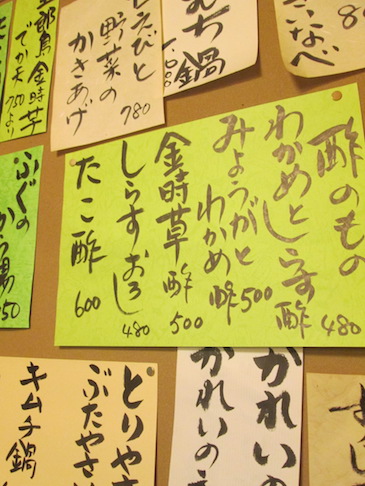 五郎島金時芋
でか天
750より
えびと
野菜の
かきあげ
780
ち鍋
なべ
ふぐの
から揚
酢のもの
わかめとしらす酢 480
みょうがと
わかめ酢 500
金時草酢 500
しらすおろし 480
たこ酢 600
かれいの
かれいの
とりや
ぶたやさ
キムチ鍋